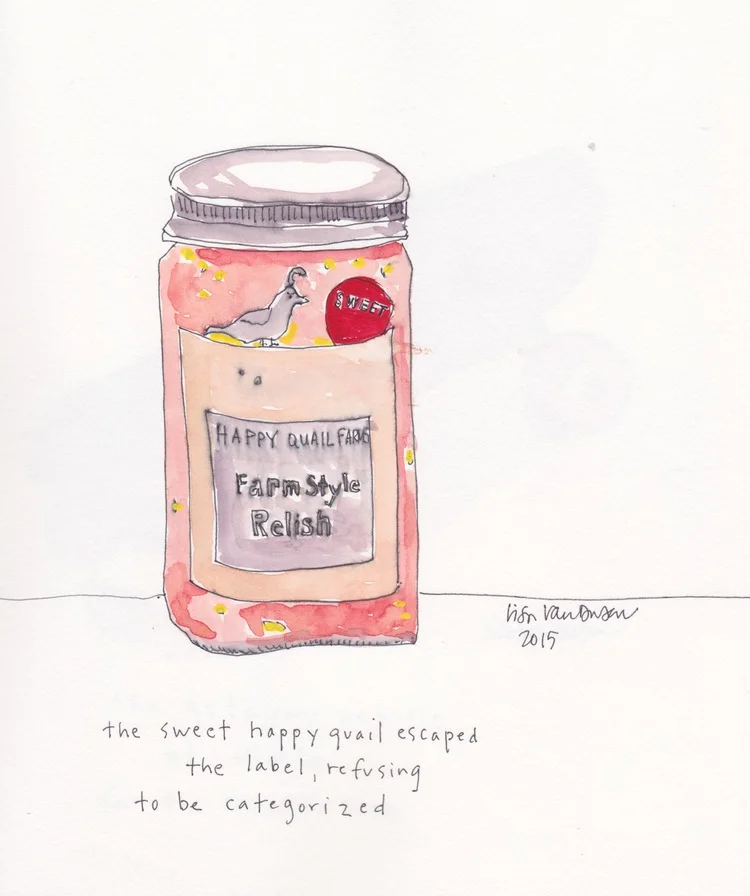 SWEET
HAPPY QUAIL FARMS
Farm Style
Relish
2015
the sweet happy quail escaped
the label, refusing
to be categorized